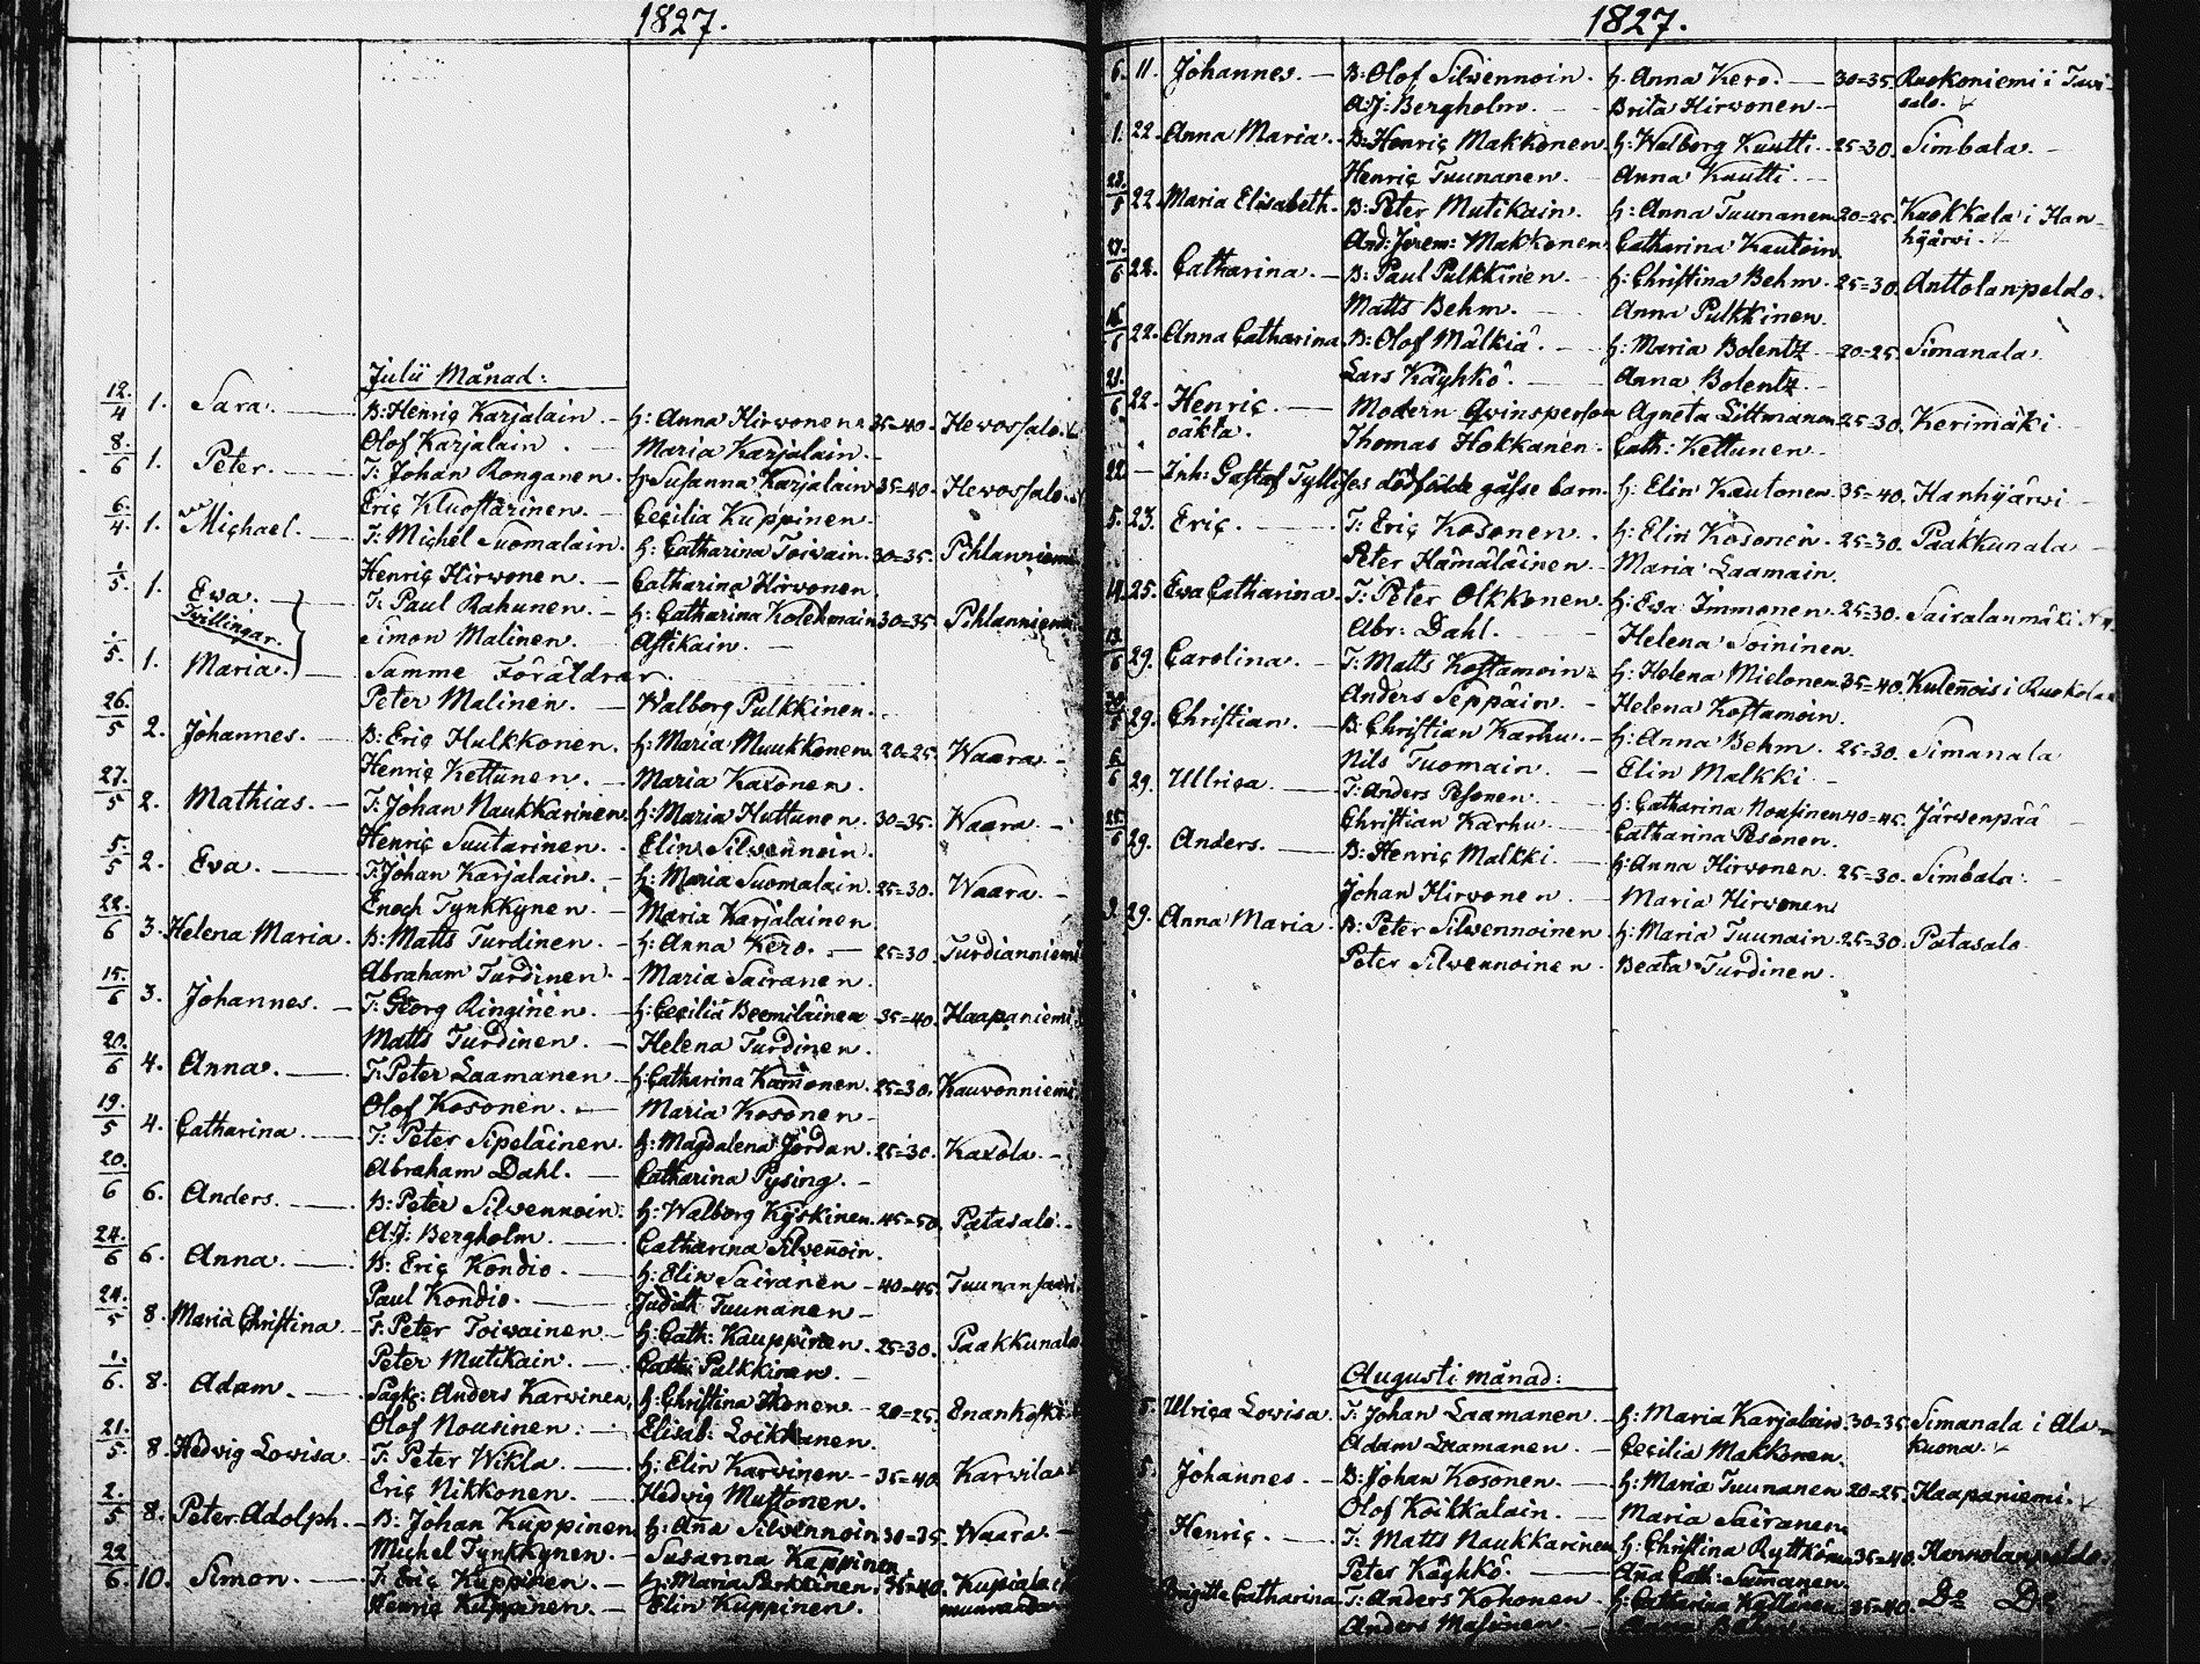 1827.
Julii Månad:
12./4 1. Sara. B: Henric Karjalain. h: Anna Hirvonen. 35=40. Hevossalo.
Olof Karjalain. Maria Karjalain.
8./6 1. Peter. T: Johan Ronganen. h: Susanna Karjalain 35=40. Hevossalo.
Eric Kluostarinen. Cecilia Kuppinen.
6./4. 1. Michael. T: Michel Suomalain. h: Catharina Toivain. 30=35. Pihlanniemi
Henric Hirvonen. Catharina Hirvonen.
1./5. 1. Eva. T: Paul Rahunen. h: Catharina Kolehmain 30=35. Pihlanniemi
Tvillingar. Simon Malinen. Astikain.
1./5. 1. Maria. Samme Föräldrar.
Peter Malinen. Walborg Pulkkinen.
26./5 2. Johannes. B: Eric Hulkkonen. h: Maria Muukkonen. 20=25. Waara.
Henric Kettunen. Maria Kaxonen.
27./5 2. Mathias. T: Johan Naukkarinen. h: Maria Huttunen. 30=35. Waara.
Henric Suutarinen. Elin Silvennoin.
5./5 2. Eva. T: Johan Karjalain. h: Maria Suomalain. 25=30. Waara.
Enoch Tynkkynen. Maria Karjalainen
22./6 3. Helena Maria. B: Matts Turdinen. h: Anna Kero. 25=30. Turdianniemi
Abraham Turdinen. Maria Sairanen.
15./6 3. Johannes. T: Georg Ringinen. h: Cecilia Beemiläinen 35=40. Haapaniemi
Matts Turdinen. Helena Turdinen.
20./6 4. Anna. T: Peter Laamanen h: Catharina Kamonen. 25=30. Kauvonniemi
Olof Kosonen. Maria Kosonen
19./5 4. Catharina. T: Peter Sipeläinen. h: Magdalena Jordan. 25=30. Kaxola.
Abraham Dahl. Catharina Pysing.
20./6 6. Anders. B: Peter Silvennoin. h: Walborg Kyskinen. 45=50. Patasalo.
A: J: Bergholm. Catharina Silvenoin.
24./6 6. Anna. B: Eric Kondio. h: Elin Sairanen 40=45. Tuunansaari
Paul Kondio. Judith Tuunanen
24./5 8. Maria Christina. T: Peter Toivainen. h: Cath: Kauppinen. 25=30. Paakkunala
Peter Mutikain. Cath: Pulkkinen.
1./6. 8. Adam. Anders Karvinen, h: Christina Ikonen. 20=25.
Olof Nousinen. Elisab: Loikkanen.
21./5 8. Hedvig Lovisa T: Peter Wikla. h: Elin Karvinen 35=40. Karvila
Eric Nikkonen. Hedvig Mustonen.
2./5 8. Peter Adolph. B: Johan Kuppinen h: Aña Silvennoin 30=35. Waara.
Michel Tynkkynen. Susanna Kuppinen
22/6. 10. Simon. T: Eric Kuppinen. h: Maria 35=40. Kupiala
Henric Kuppinen. Elin Kuppinen.
1827.
6. 11. Johannes. B: Olof Silvennoin. h: Anna Kero. 30=35. Ruokoniemi i Tavi
A: J: Bergholm. Brita Hirvonen salo.
1. 22. Anna Maria. B: Henric Makkonen. h: Walborg Kuutti. 25=30. Simbala.
Henric Tuunanen. Anna Kuutti.
23./5 22. Maria Elisabeth. B: Peter Mutikain. h: Anna Tuunanen 20=25. Kuokkala i Han
And: Jerem: Makkonen. Catharina Kautoin. hijärvi.
17./6 22. Catharina. B: Paul Pulkkinen. h: Christina Behm. 25=30. Anttolanpeldo.
Matts Behm. Anna Pulkkinen.
16./6 22. Anna Catharina B: Olof Mälkiä. h: Maria Bolentz 20=25. Simanala.
Lars Käyhkö. Anna Bolentz.
21./6 22. Henric. Modern Qvinsperson Agneta Littmanen 25=30. Kerimäki.
oäkta. Thomas Hokkanen. Cath: Kettunen
22 Inh: Gustaf Tyllises dödfödde gåsse barn. h: Elin Kautonen. 35=40. Hanhijärvi
5. 23. Eric. T: Eric Kosonen. h: Elin Kosonen. 25=30. Paakkunala
Peter Hämäläinen Maria Laamain.
14. 25. Eva Catharina. T: Peter Olkkonen. h: Eva Immonen. 25=30. Sairalanmäki
Abr: Dahl. Helena Soininen.
13/6 29. Carolina. T: Matts Kostamoin. h: Helena Mielonen 35=40. Kuleñois i Ruokola
Anders Seppäin. Helena Kostamoin.
29. Christian. B: Christian Karhu. h: Anna Behm. 25=30. Simanala
Nils Tuomain. Elin Malkki.
6/6 29. Ullrica T: Anders Pesonen. h: Catharina Nousinen 40=45. Järvenpää
Christian Karhu. Catharina Pesonen.
25./6 29. Anders. B: Henric Malkki. h: Anna Hirvonen. 25=30. Simbala.
Johan Hirvonen. Maria Hirvonen
3. 29. Anna Maria. B: Peter Silvennoinen h: Maria Tuunain. 25=30. Patasalo
Peter Silvennoinen. Beata Turdinen.
Augusti månad:
5. Ulrica Lovisa. T: Johan Laamanen. h: Maria Karjalain. 30=35. Simanala i Ala
Adam Laamanen. Cecilia Makkonen. kuona.
5. Johannes. B: Johan Kosonen. h: Maria Tuunanen 20=25. Haapaniemi.
Olof Koikkalain. Maria Sairanen.
Henric. T: Matts Naukkarinen h: Christina 35=40.
Peter Käyhkö. Aña Cath:
Brigitta Catharina T: Anders Kohonen h: Catharina 35=40. Do Do
Anders Masinen.